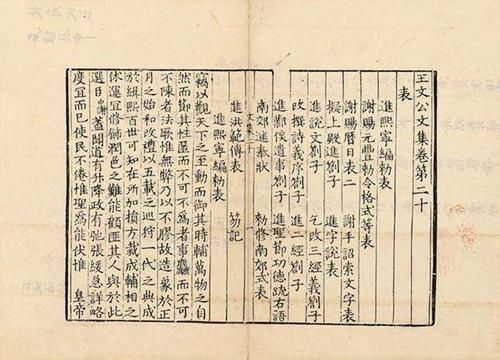 王文公文集卷第二十
表
進熙寧編勑表
謝賜元豐勑令格式等表
謝賜曆日表二 謝手詔索文字表
擬上殿進劄子 進字說表
進說文劄子 乞改三經義劄子
改撰詩義序劄子 進二經劄子
進鄴侯遺事劄子 進聖節功德疏右語
南郊進奉狀 勑修南郊式表
進洪範傳表 笏記
進熙寧編勑表
竊以觀天下之至動而御其時輔萬物之自
然而節其性匿而不可不為者事麤而不可
不陳者法歌惟無弊乃以不膠故造象於正
月之始和改禮以五載之巡狩一代之典成
於緝熙百世可知在所加損方裁成輔相之
休運宜修飾潤色之難能顧匪其人與於此
選日中謝蓋聞道有升降政有弛張緩急詳略
度宜而已使民不倦惟聖為能伏惟 皇帝